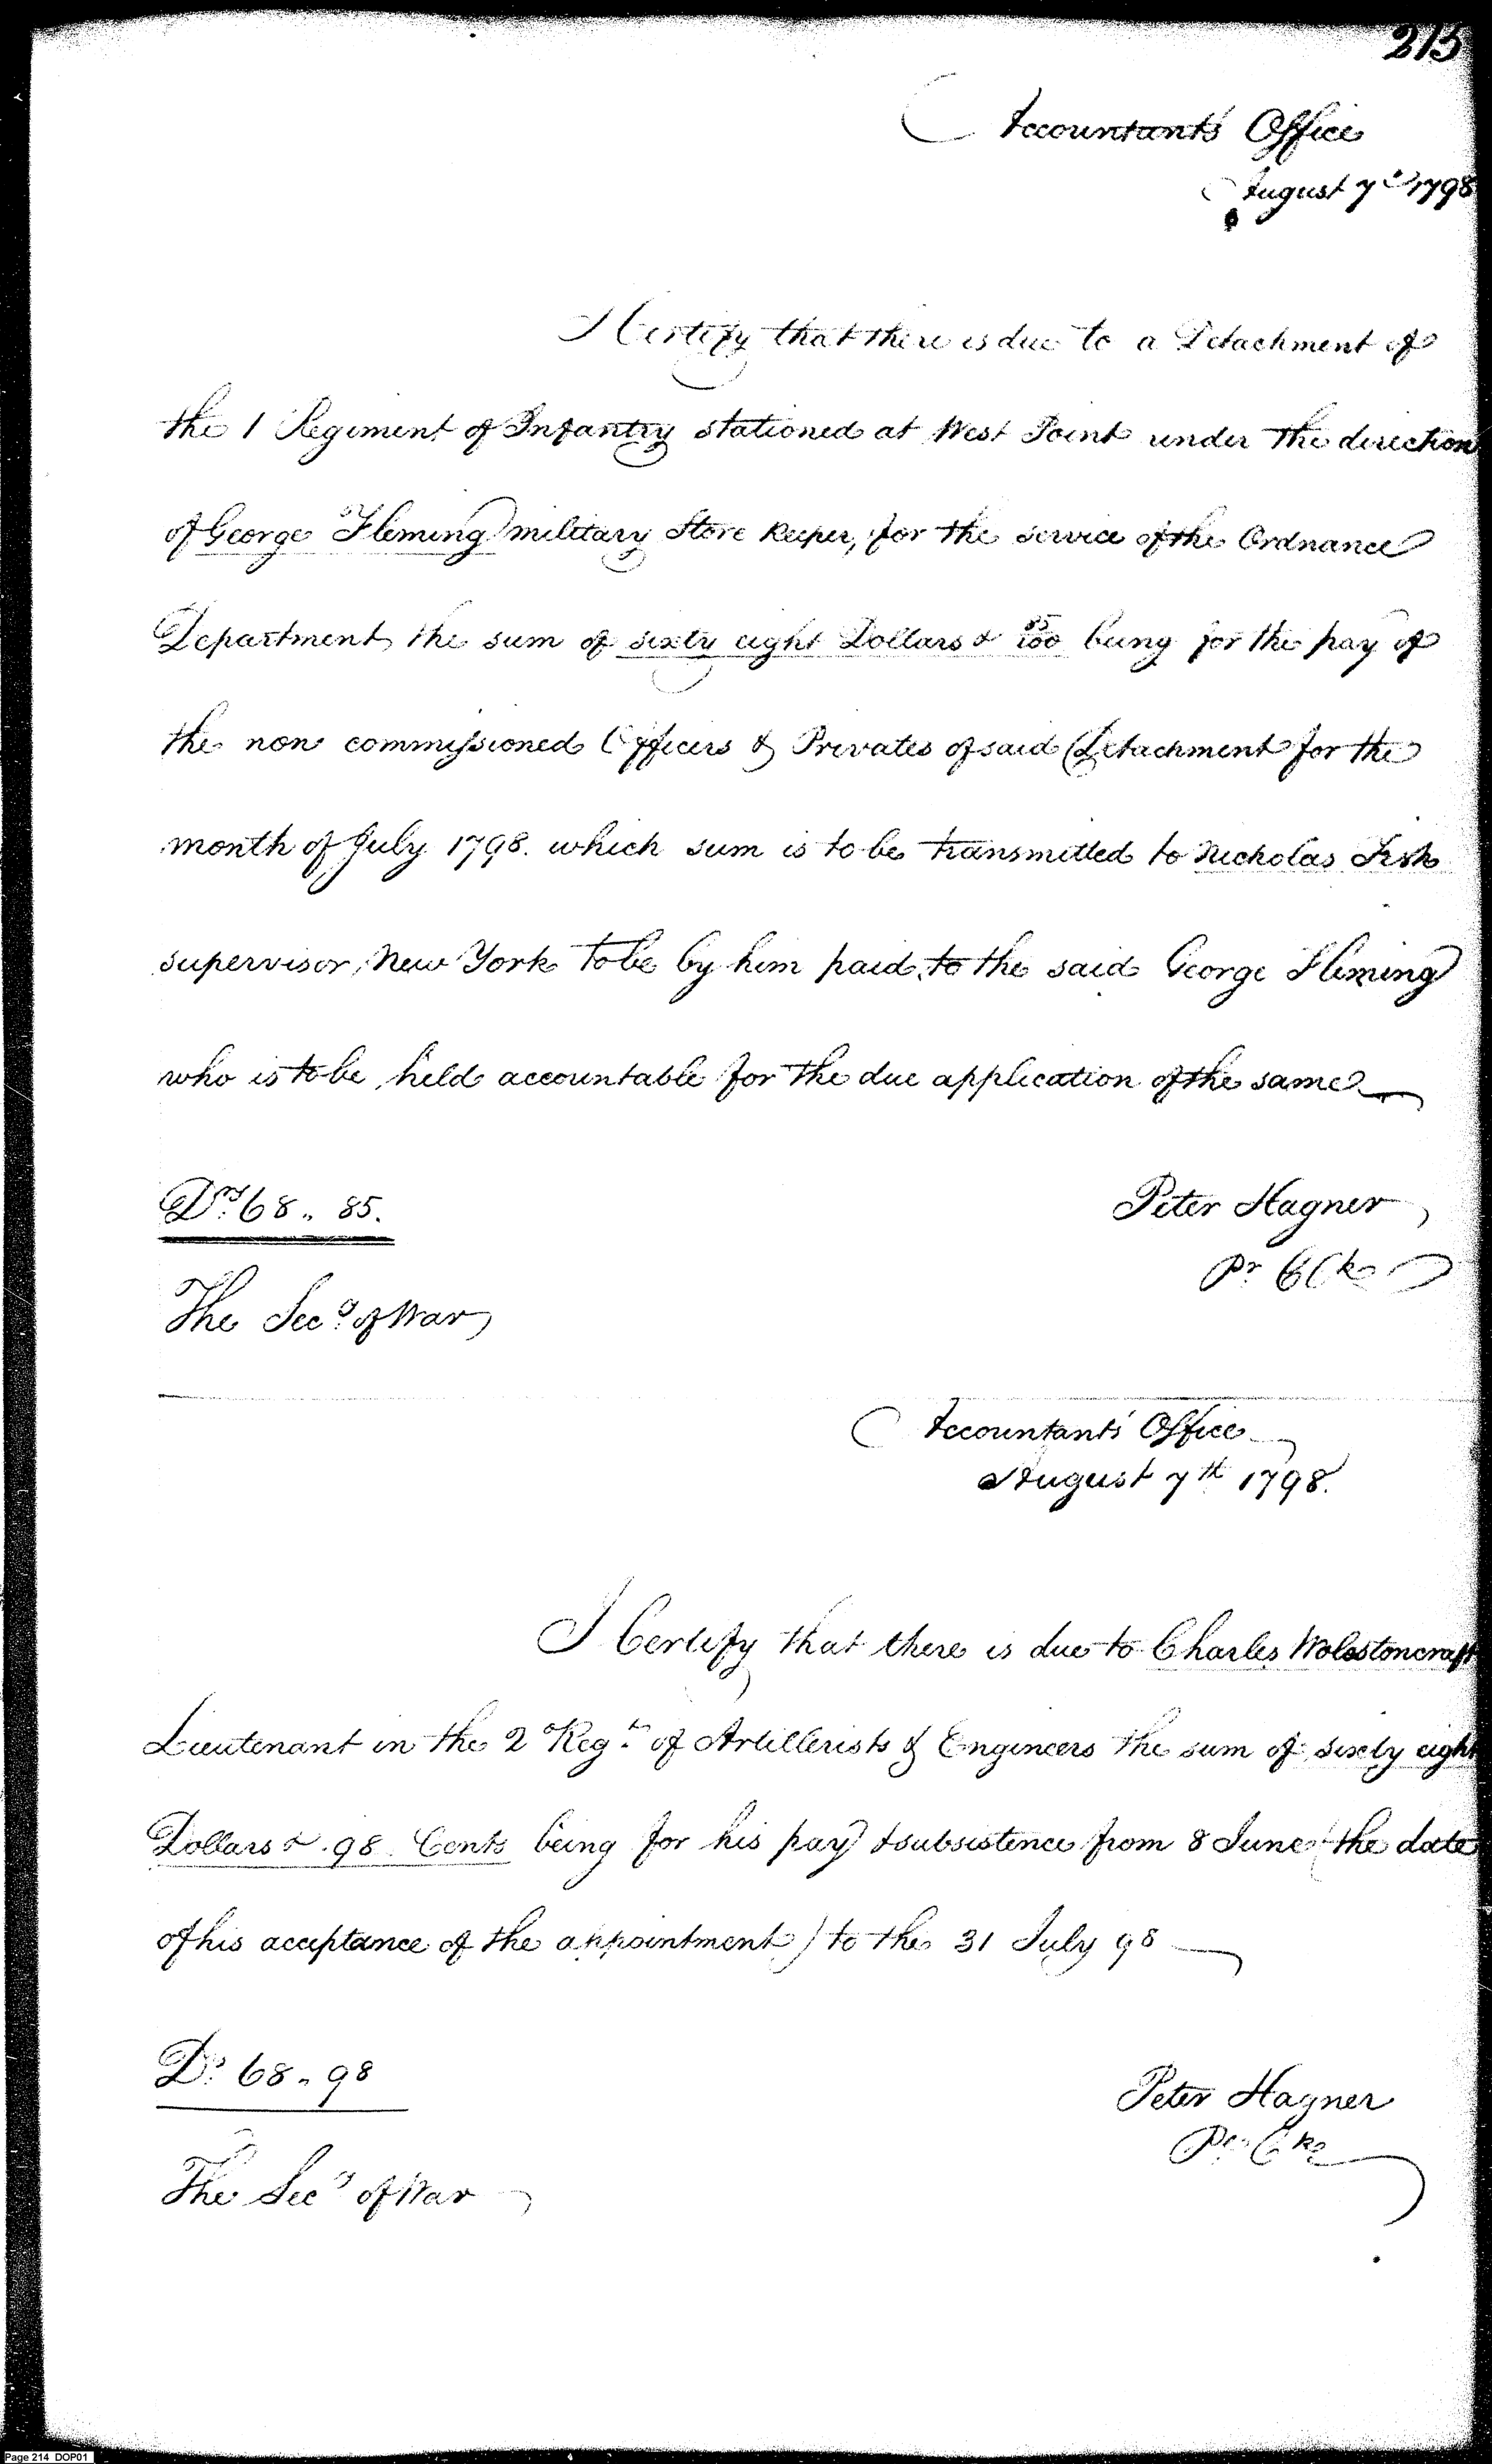 213
Accountants Office
August 7th 1798
I Certify that there is due to a Detachment of
the 1 Regiment of Infantry stationed at West Point under the direction
of George Fleming military Store Keeper, for the service of the Ordnance
Department the sum of sixty eight Dollars & 85/100 being for the pay of
the non commissioned Officers & Privates of said Detachment for the
month of July 1798. which sum is to be transmitted to Nicholas Fish
supervisor, New York to be by him paid to the said George Fleming
who is to be held accountable for the due application of the same
Drs 68 .. 85.
Peter Hagner
Pr Clk
The Secy of War
Accountants' Office
August 7th 1798.
I Certify that there is due to Charles Wolestoncraft
Lieutenant in the 2 Regt of Artillerists & Engineers the sum of sixty eight
Dollars & .98 Cents being for his pay & subsistence from 8 June (the date
of his acceptance of the appointment) to the 31 July 98
Ds 68 .. 98
Peter Hagner
Pr Clk
The Secy of War
Page 214 DOP01